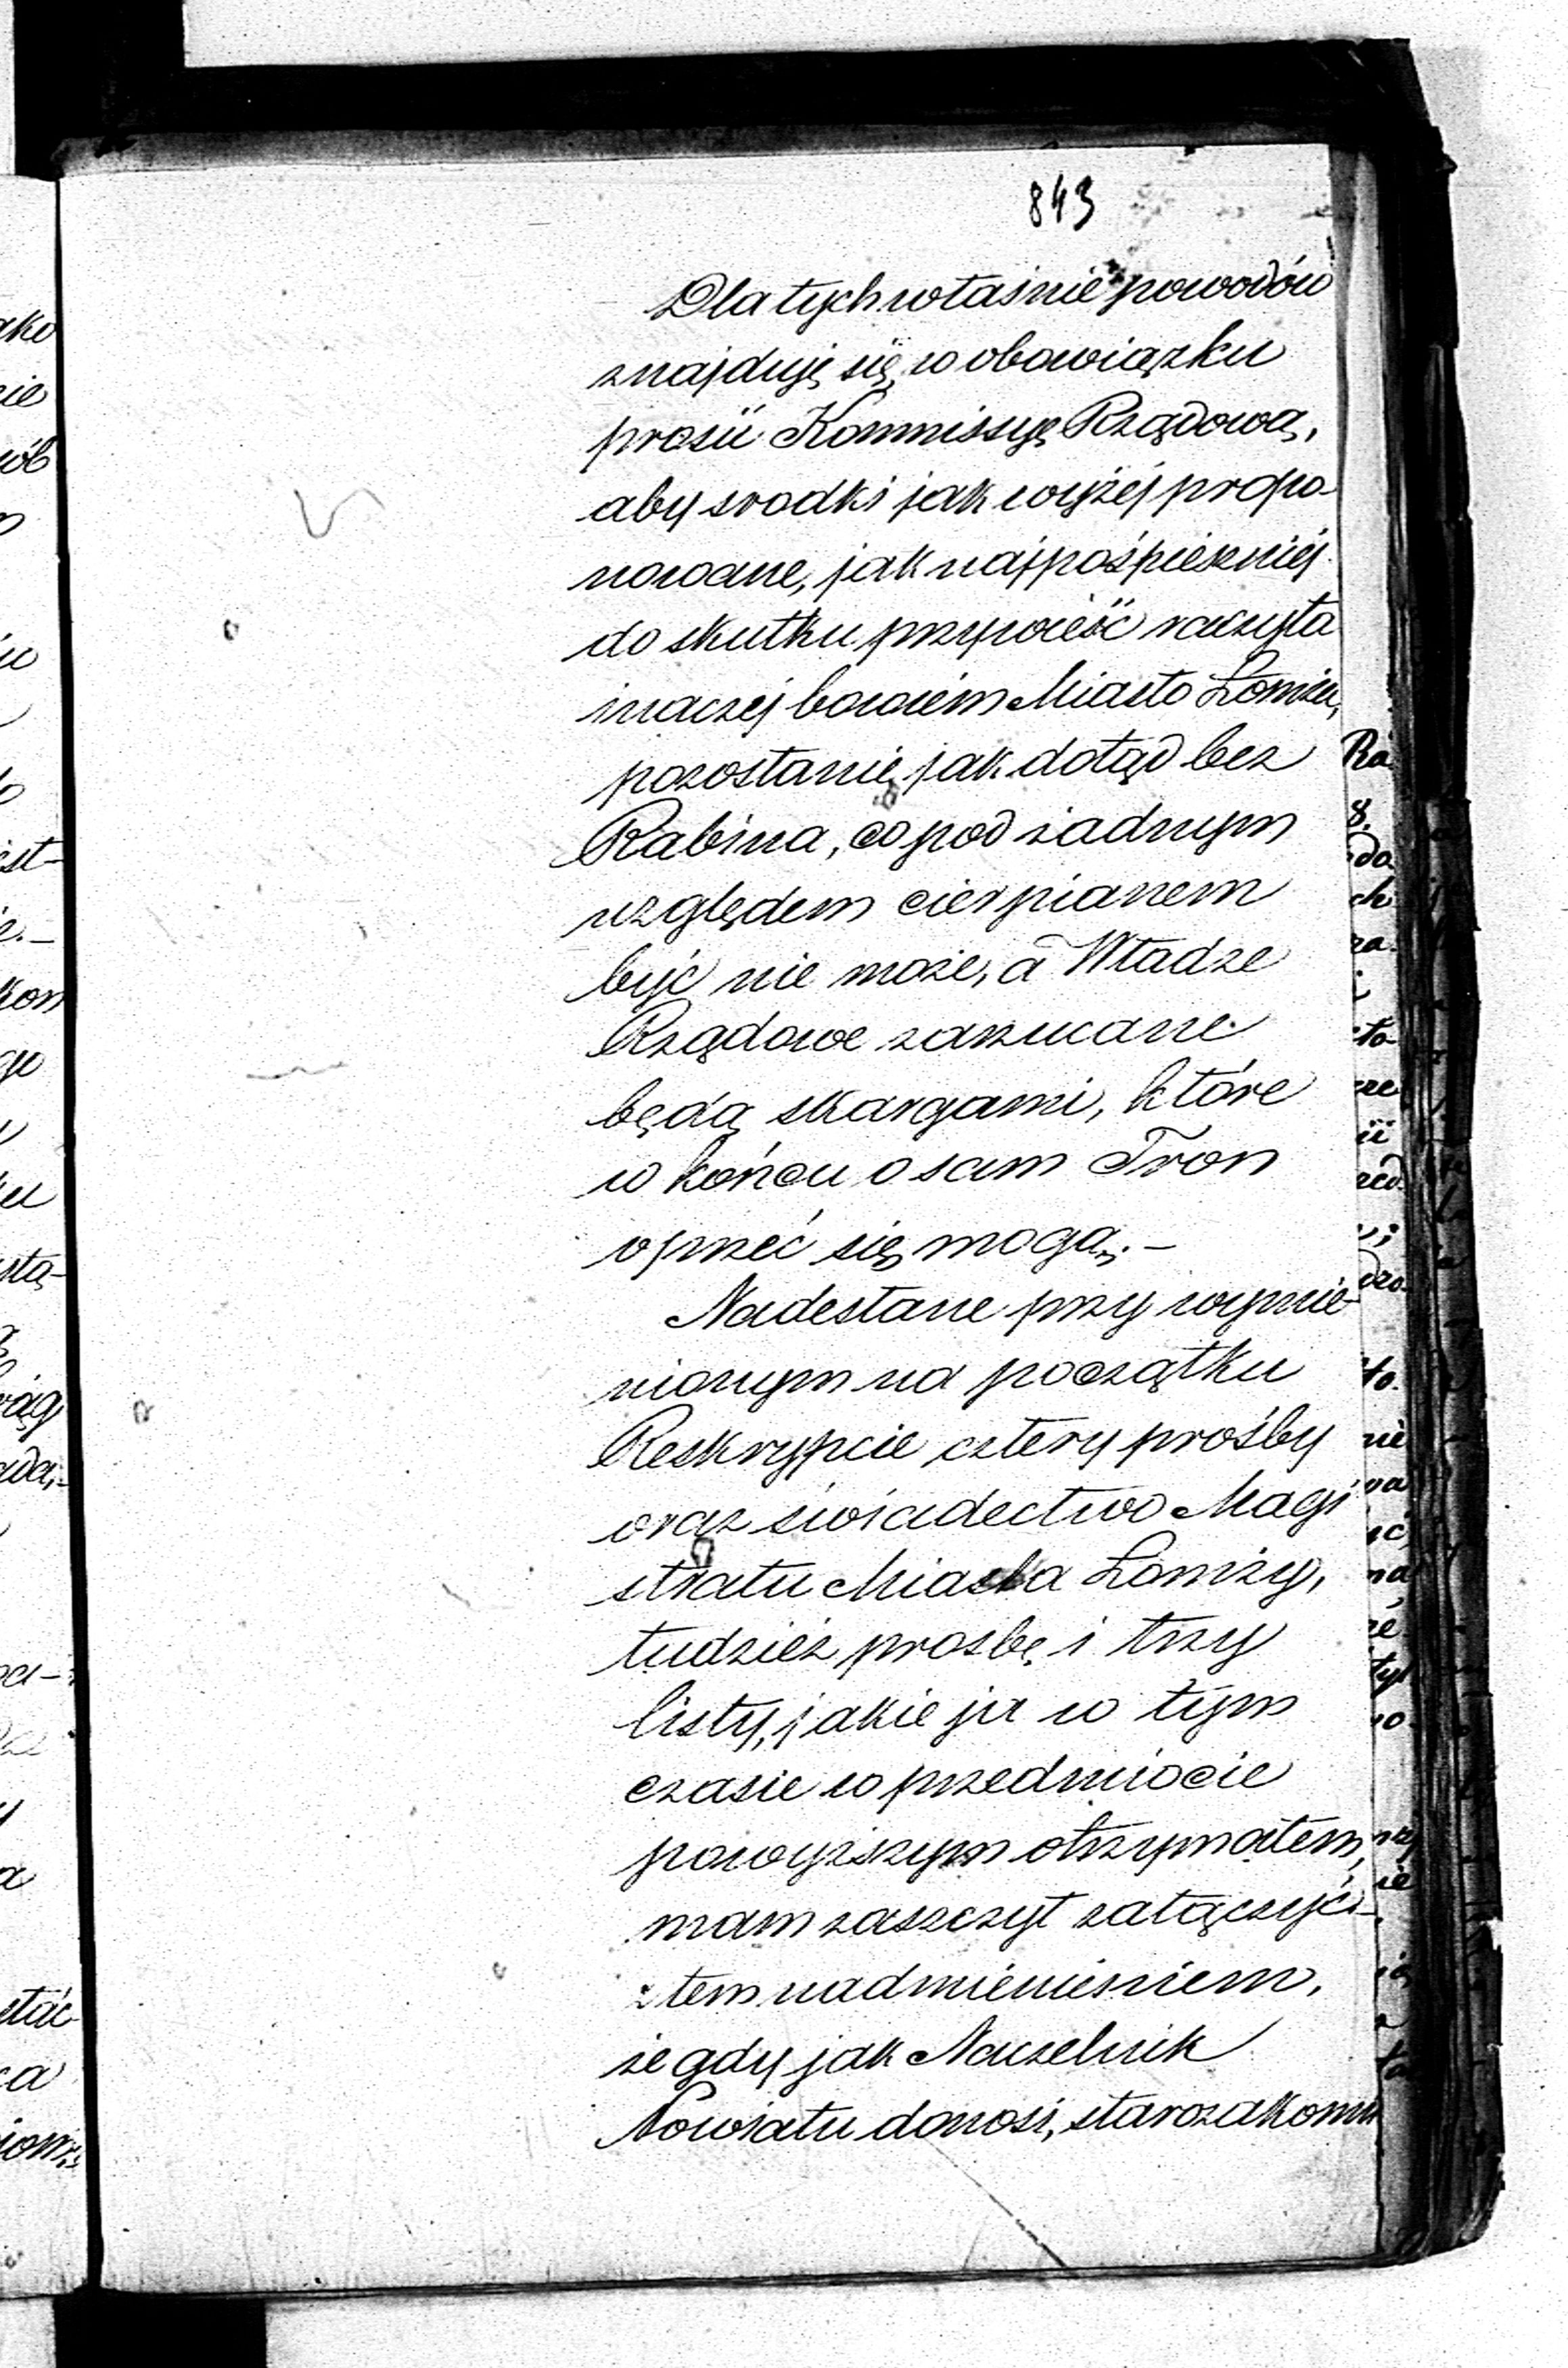 843
Dla tych właśnie powodów
znajduję się w obowiązku
prosić Kommissyę Rządową,
aby srodki jak wyżej propo-
nowane, jak najpośpieszniej
do skutku przywieść raczyła
inaczej bowiem Miasto Łomża,
pozostanie jak dotąd bez
Rabina, co pod żadnym
względem cierpianem
być nie może, a Władze
Rządowe zarzucane
będą skargami, które
w końcu o sam Tron
oprzeć się mogą.—
Nadesłane przy wymie-
nionym na początku
Reskrypcie cztery prośby
oraz świadectwo Magi
stratu Miasta Łomży,
tudzież prosbę i trzy
listy, jakie ja w tym
czasie w przedmiocie
powyższym otrzymałem,
mam zaszczyt załączyć
z tem nadmienieniem,
że gdy jak Naczelnik
Powiatu donosi, starozakonni